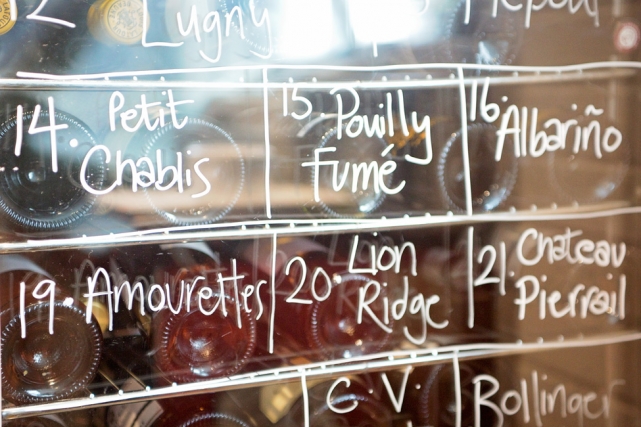 12
Lugny
14. Petit Chablis
15 Pouilly Fumé
16. Albariño
19. Amourettes
20. Lion Ridge
21. Chateau Pierrail
C V.
Bollinger